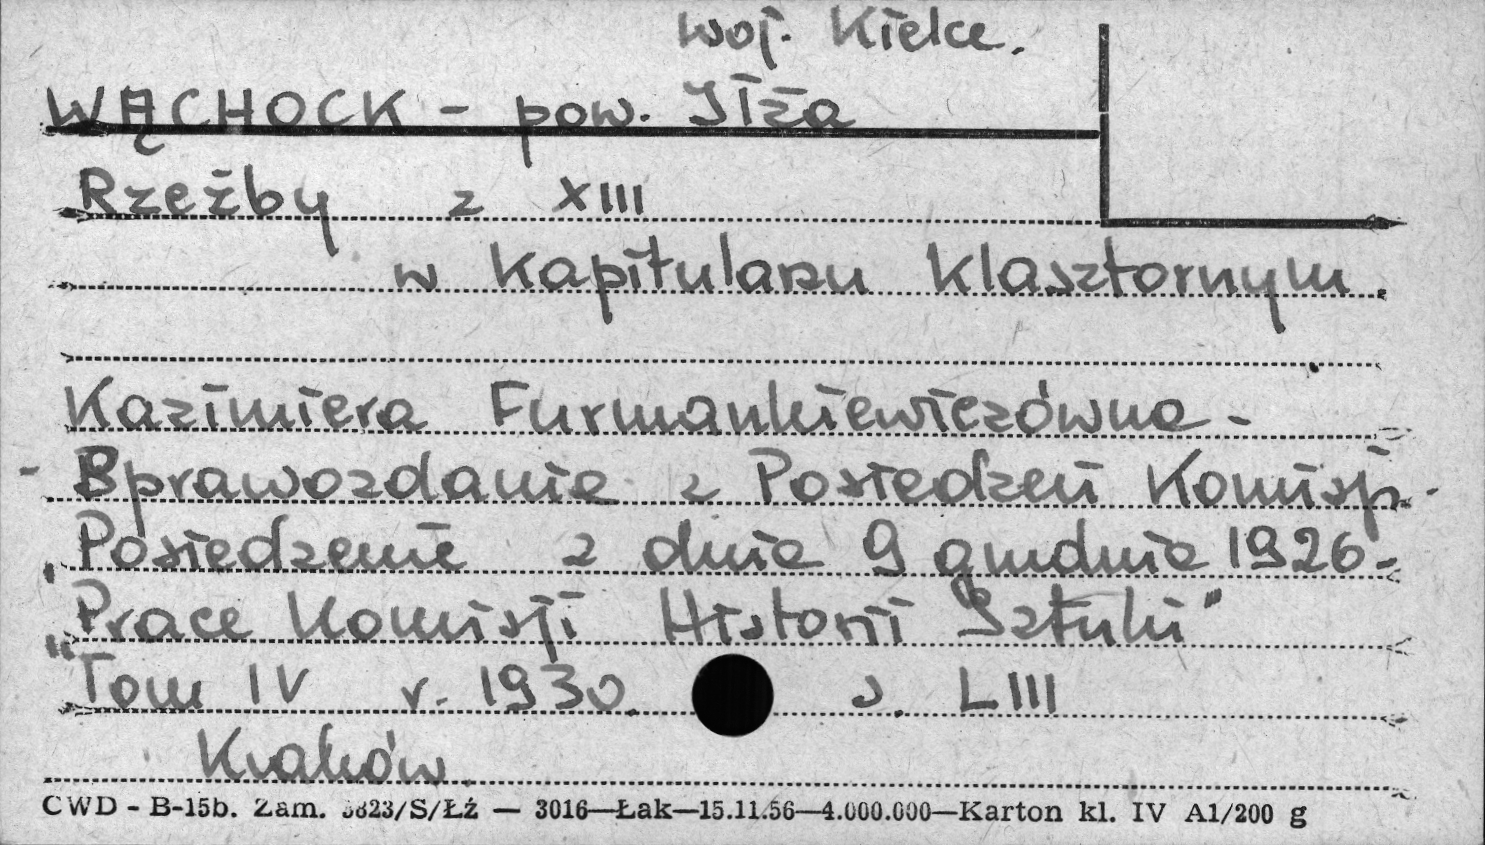 woj. Kielce.
WĄCHOCK - pow. Iłża
Rzeźby z XIII
w Kapitularzu Klasztornym.
Kazimiera Furmankiewiczówna -
- Sprawozdanie z Posiedzeń Komisji -
Posiedzenie z dnia 9 grudnia 1926 -
"Prace Komisji Historii Sztuki"
Tom IV r. 1930. s. LIII
Kraków.
CWD - B-15b. Zam. 3823/S/Łź — 3016—Łak—15.11.56—4.000.000—Karton kl. IV A1/200 g